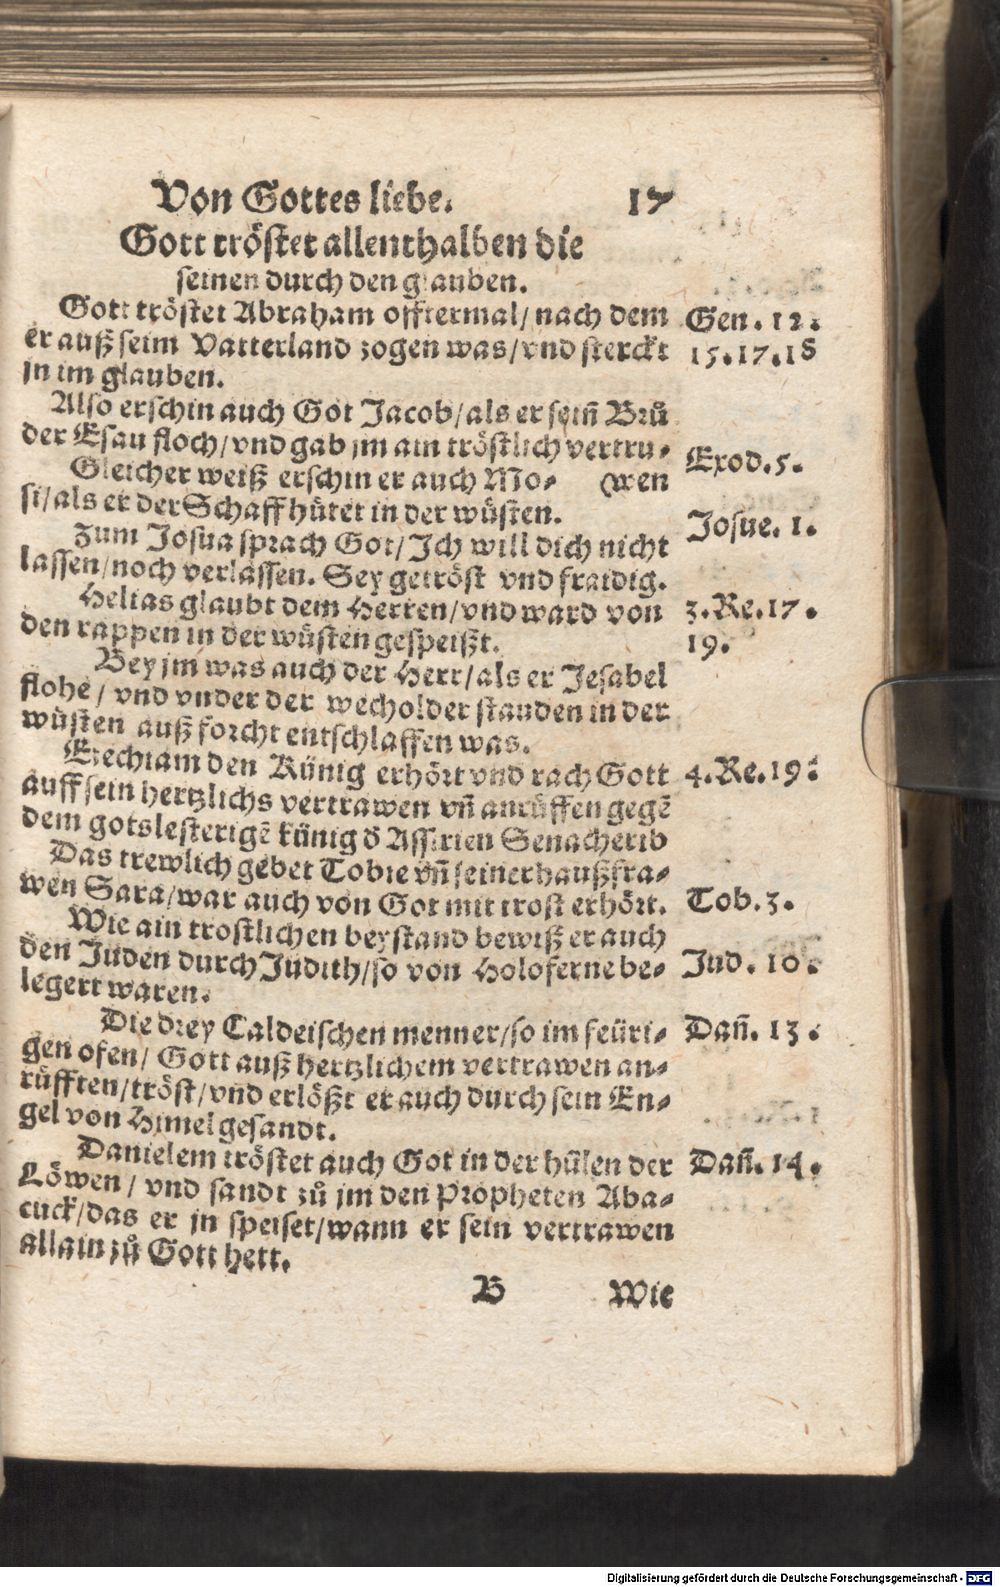 Von Gottes liebe. 17
Gott tröstet allenthalben die
seinen durch den glauben.
Gott tröstet Abraham offtermal/ nach dem Gen. 12.
er auß seim Vatterland zogen was/ vnd sterckt 15.17.18
jn im glauben.
Also erschin auch Got Jacob/ als er seim̃ Brů
der Esau floch/ vnd gab jm ain tröstlich vertru- Exod. 5.
Gleicher weiß erschin er auch Mo- (wen
si/ als er der Schaff hütet in der wüsten.
Zum Josua sprach Got/ Ich will dich nicht Josue. 1.
lassen/ noch verlassen. Sey getröst vnd fraidig.
Helias glaubt dem Herren/ vnd ward von 3. Re. 17.
den rappen in der wüsten gespeißt. 19.
Bey jm was auch der Herr/ als er Jesabel
flohe/ vnd vnder der wecholder stauden in der
wüsten auß forcht entschlaffen was.
Ezechiam den Künig erhört vnd rach Gott 4. Re. 19.
auff sein hertzlichs vertrawen vñ anrüffen gegẽ
dem gotslesterigẽ künig ð Assirien Senacherib
Das trewlich gebet Tobie vñ seiner haußfra-
wen Sara/ war auch von Got mit trost erhört. Tob. 3.
Wie ain trostlichen beystand bewiß er auch
den Juden durch Judith/ so von Holoferne be- Jud. 10.
legert waren.
Die drey Caldeischen menner/ so im feüri- Dañ. 13.
gen ofen/ Gott auß hertzlichem vertrawen an-
rüfften/ tröst/ vnd erlößt er auch durch sein En-
gel von Himel gesandt.
Danielem tröstet auch Got in der hülen der Dañ. 14.
Löwen/ vnd sandt zů jm den Propheten Aba-
cuck/ das er jn speiset/ wann er sein vertrawen
allain zů Gott hett.
B Wie
Digitalisierung gefördert durch die Deutsche Forschungsgemeinschaft - DFG